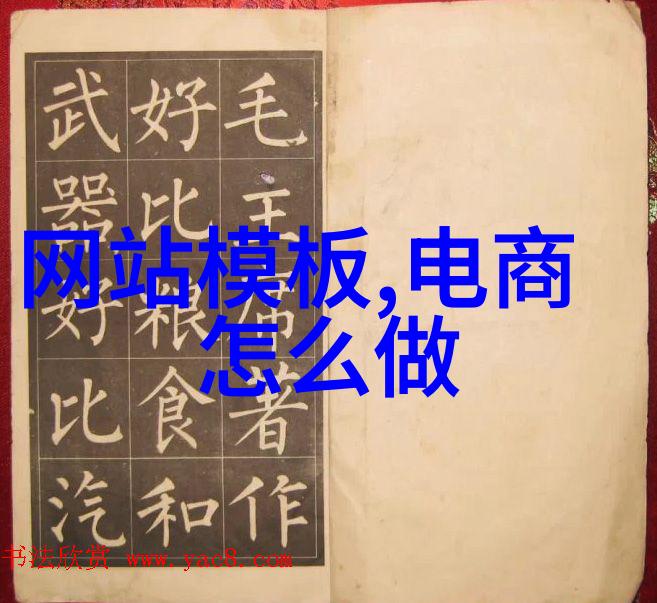 毛主席著作
好比粮食和
武器好比汽
网站模板,电商
怎么做
书法欣赏 www.yac8.com